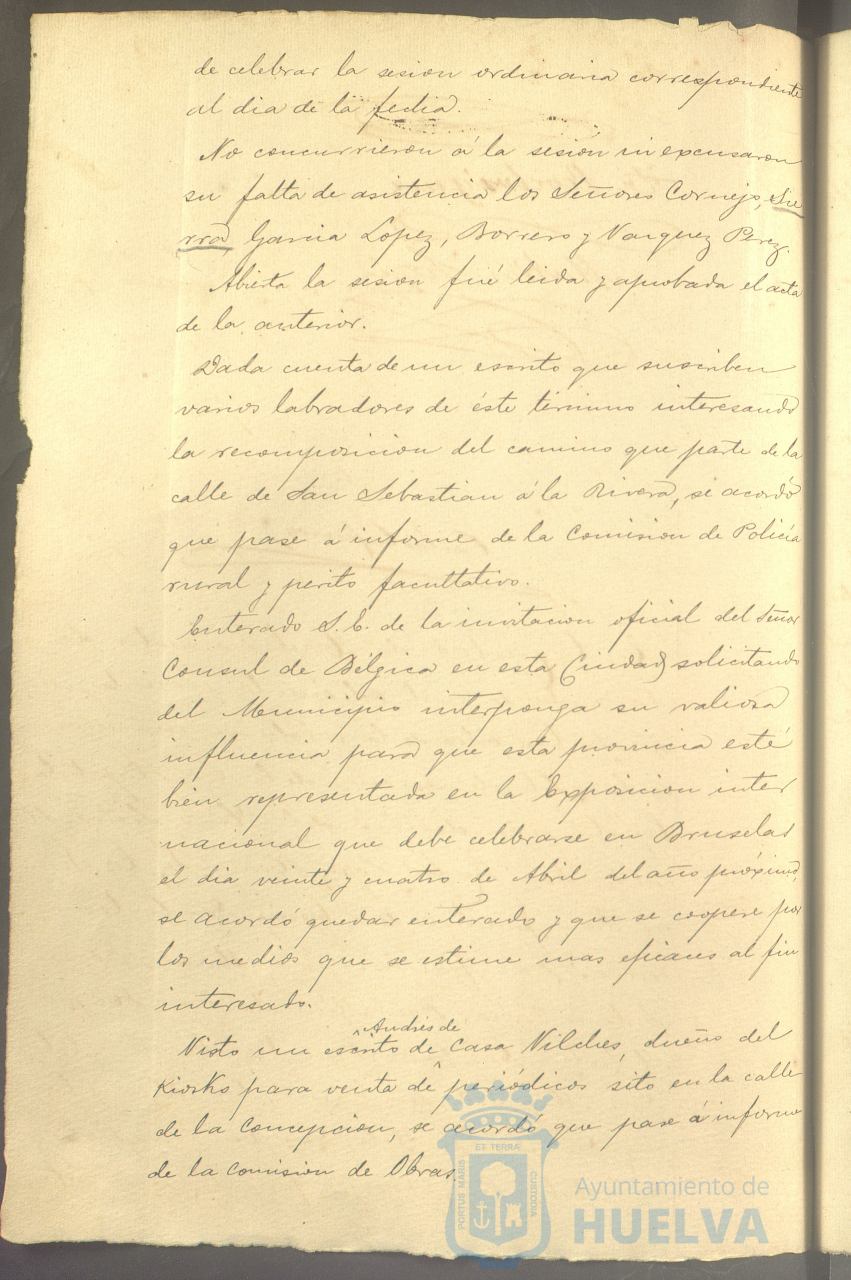 de celebrar la sesion ordinaria correspondiente
al dia de la fecha.
No concurrieron á la sesión ni excusaron
su falta de asistencia los Señores Cornejo, Sie
rra, Garcia Lopez, Borrero y Vazquez Perez.
Abierta la sesion fué leida y aprobada el acta
de la anterior.
Dada cuenta de un escrito que suscriben
varios labradores de éste término interesando
la recomposicion del camino que parte de la
calle de San Sebastian á la Rivera, se acordó
que pase á informe de la Comision de Policía
rural y perito facultativo.
Enterado S. E. de la invitacion oficial del Señor
Consul de Bélgica en esta Ciudad solicitando
del Municipio interponga su valiosa
influencia para que esta provincia esté
bien representada en la Exposicion inter
nacional que debe celebrarse en Bruselas
el dia veinte y cuatro de Abril del año próximo,
se acordó quedar enterado y que se coopere por
los medios que se estime mas eficaces al fin
interesado.
Andrés de
Visto un escrito de Casa Vilches, dueño del
Kiosko para venta de periódicos sito en la calle
de la Concepcion, se acordó que pase á informe
de la Comision de Obras.
ET TERRÆ
PORTUS MARIS
CUSTODIA
Ayuntamiento de
HUELVA